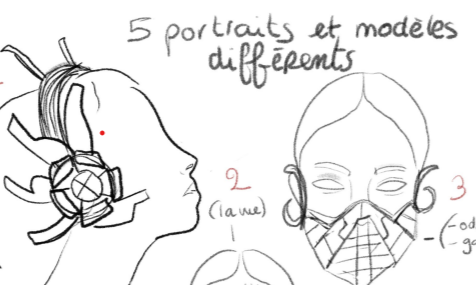 5 portraits et modèles
différents
2
(lame)
3